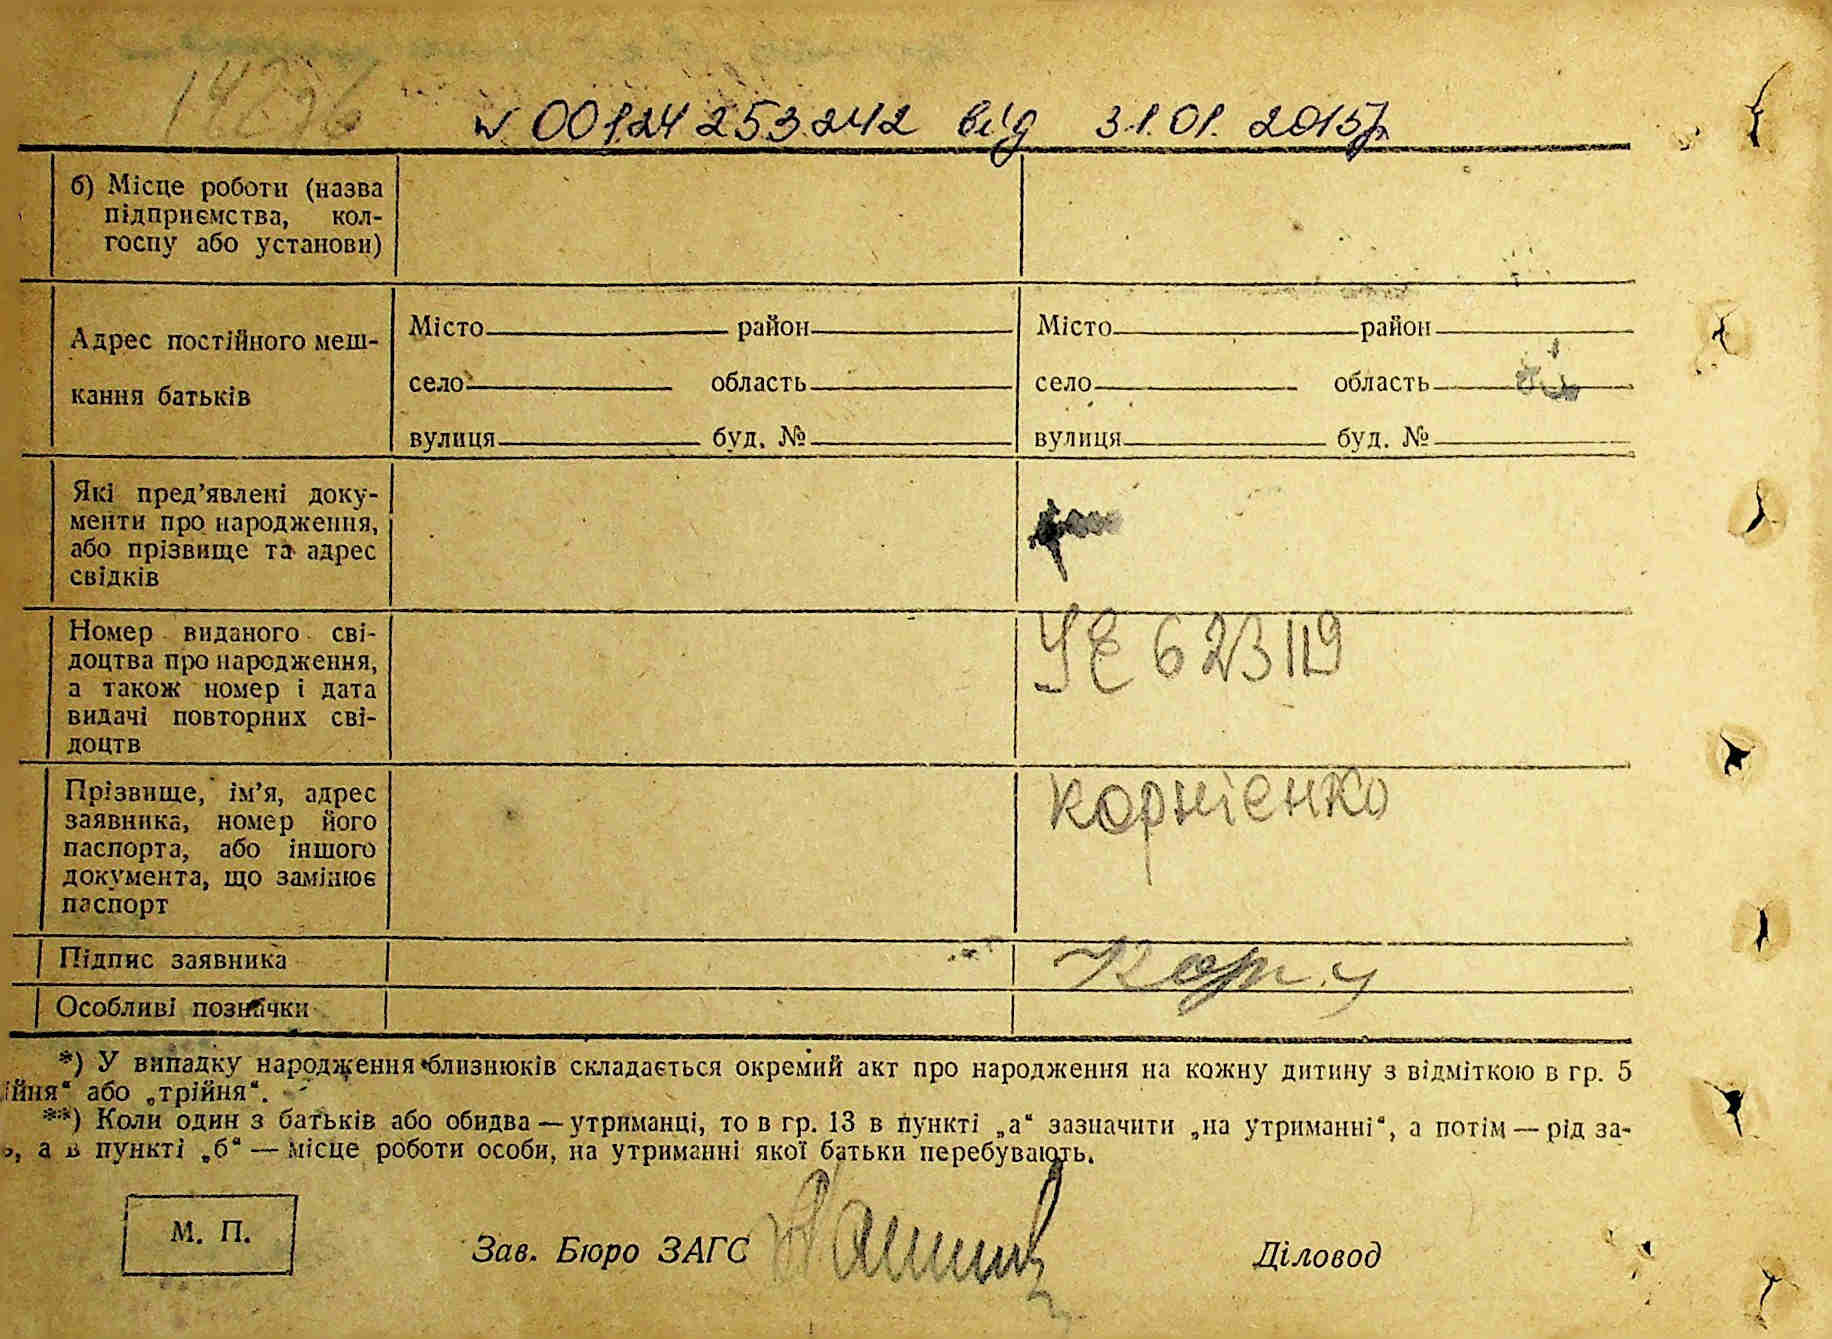 № 00124253242 від 31.01.2015р
б) Місце роботи (назва
підприємства, кол-
госпу або установи)
Адрес постійного меш-
кання батьків
Місто район
село область
вулиця буд. №
Місто район
село область
вулиця буд. №
Які пред’явлені доку-
менти про народження,
або прізвище та адрес
свідків
Номер виданого сві-
доцтва про народження,
а також номер і дата
видачі повторних сві-
доцтв
УЕ 623119
Прізвище, ім’я, адрес
заявника, номер його
паспорта, або іншого
документа, що замінює
паспорт
Корнієнко
Підпис заявника
Особливі позначки
*) У випадку народження близнюків складається окремий акт про народження на кожну дитину з відміткою в гр. 5
ійня“ або „трійня“.
**) Коли один з батьків або обидва — утриманці, то в гр. 13 в пункті „а“ зазначити „на утриманні“, а потім — рід за-
, а в пункті „б“ — місце роботи особи, на утриманні якої батьки перебувають.
М. П.
Зав. Бюро ЗАГС
Діловод